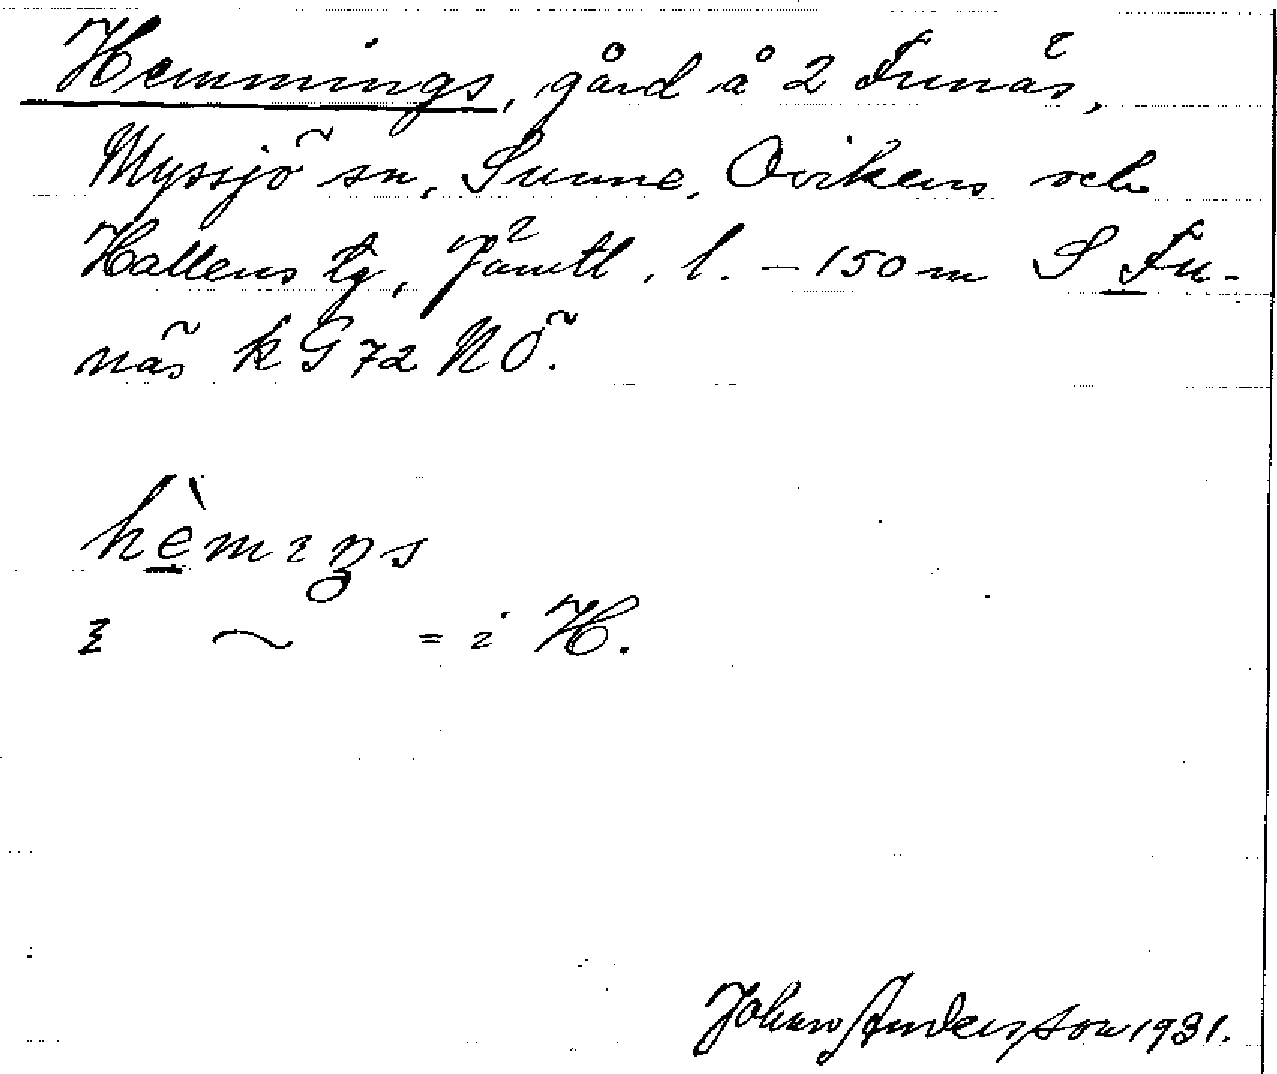 Hemmings, gård å 2 Funäs,
Myssjö sn, Sunne, Ovikens och
Hallens tg, Jämtl. l. – 150 m S Fu-
näs k G 72 NÖ.
hèmıŋs
ı ~ = i H.
Johan Andersson 1931.